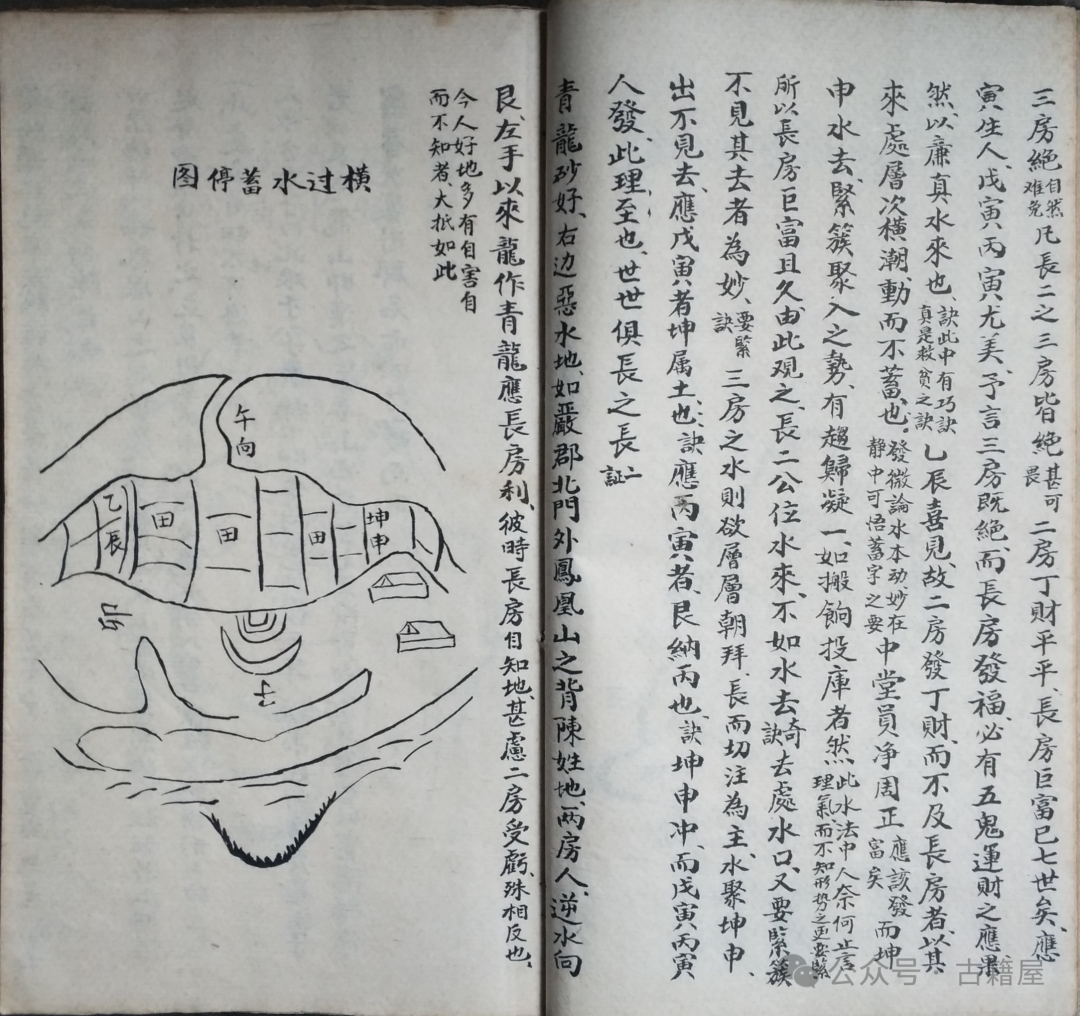 三房絕自然难免凡長二之三房皆絕甚可畏二房丁財平平、長房巨富已七世矣、應
寅生人、戊寅丙寅尤美、予言三房既絕、而長房發福、必有五鬼運財之應、果
然、以亷真水來也、訣此中有巧訣真是救貧之訣乙辰喜見、故二房發丁財、而不及長房者、以其
來處層次橫潮、動而不蓄也。發微論水本动、妙在静中可悟蓄字之要中堂員净周正應該發富矣而坤
申水去、緊簇聚入之勢、有趨歸凝一、如搬餉投庫者然、此水法中人奈何止言理氣而不知形势之更要緊
所以長房巨富且久、由此观之、長二公位水來、不如水去奇訣去處水口、又要緊簇
不見其去者為妙、要緊訣三房之水則欲層層朝拜、長而切注為主、水聚坤申、
出不見去、應戊寅者坤属土也、訣應丙寅者、艮納丙也、訣坤申冲、而戊寅丙寅
人發、此理至也、世世俱長之長二証
青龍砂好、右边惡水地、如嚴郡北門外鳳凰山之背陳姓地、两房人、逆水向
艮、左手以來龍作青龍應長房利、彼時長房自知地、甚慮二房受虧、殊相反也、
今人好地多有自害自
而不知者、大抵如此
橫过水蓄停图
午向
乙辰
田
田
田
坤申
子